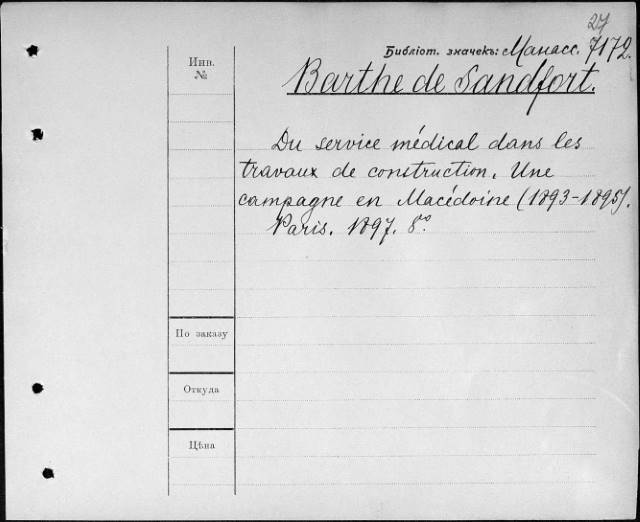 27
Библіот. значекъ: Манасс. 7172
Инв.
№
Barthe de Sandfort.
Du service médical dans les
travaux de construction. Une
campagne en Macédoine (1893-1895).
Paris. 1897. 8º
По заказу
Откуда
Цѣна